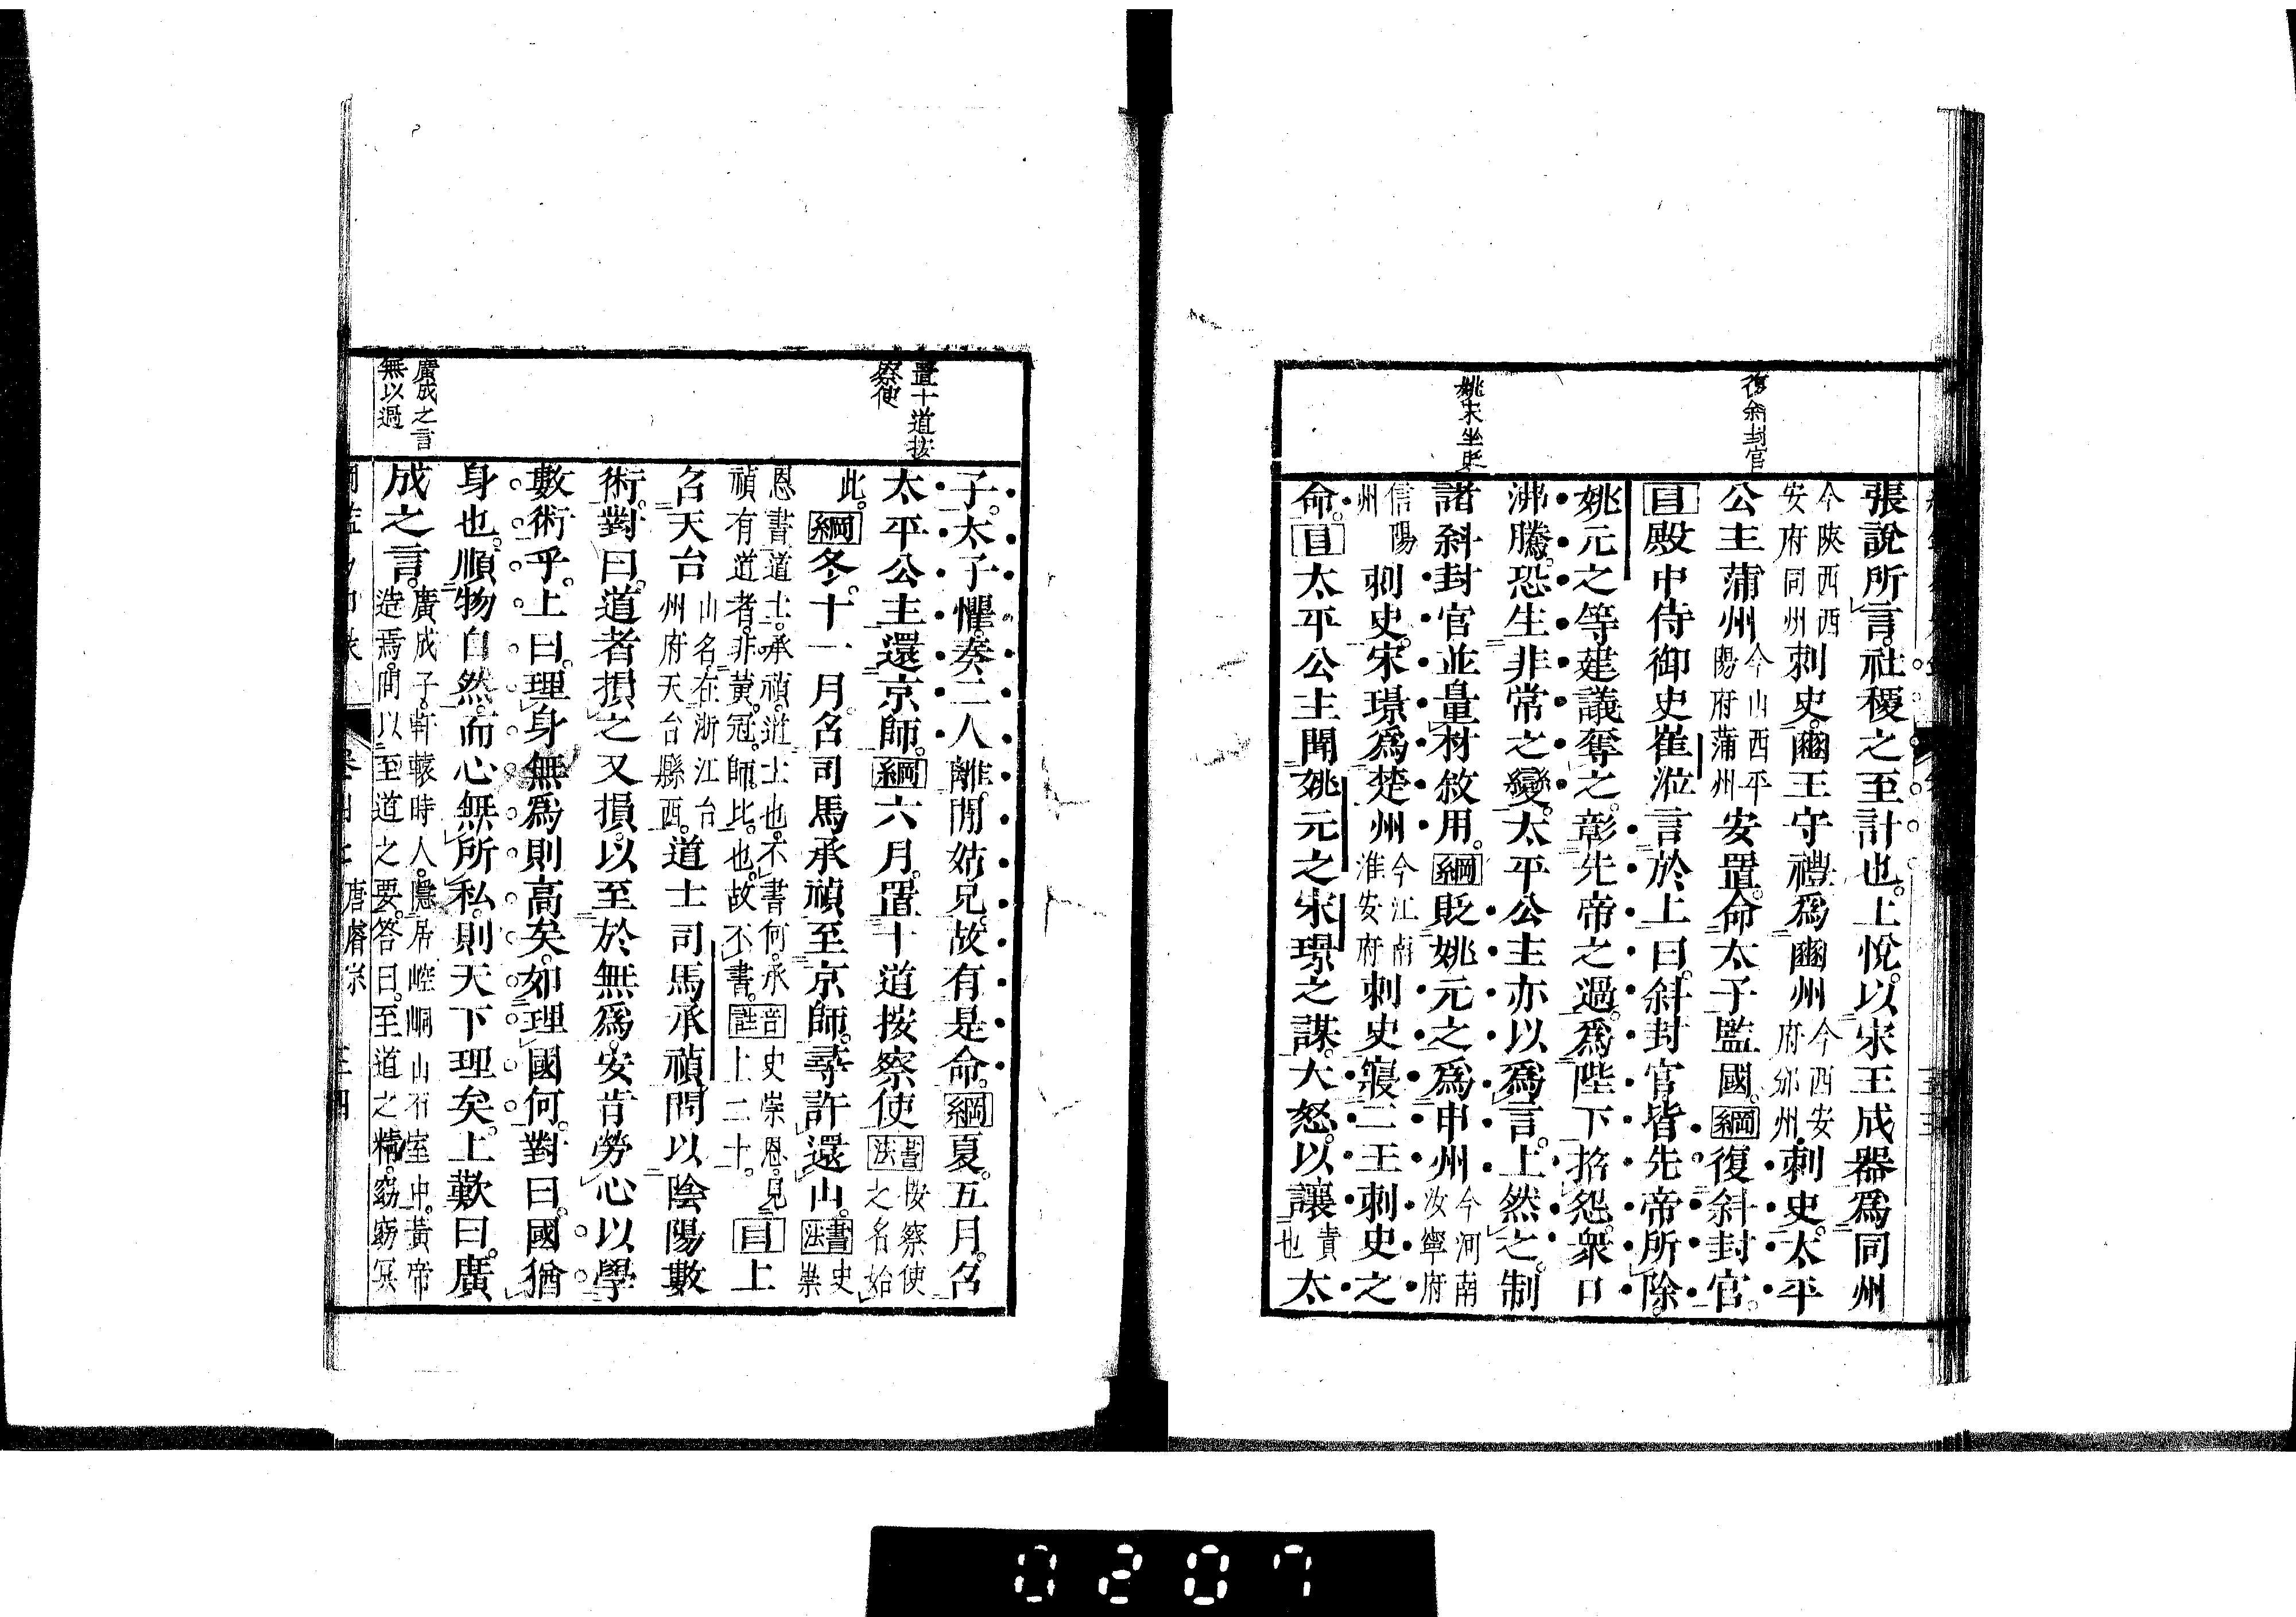 復斜封官
姚宋坐貶
張說所言。社稷之至計也。上悅。以宋王成器爲同州
今陝西西安府同州刺史。豳王守禮爲豳州今西安府邠州刺史。太平
公主蒲州今山西平陽府蒲州安置。命太子監國。綱復斜封官。
目殿中侍御史崔涖言於上曰。斜封官皆先帝所除。
姚元之等建議奪之。彰先帝之過。爲陛下招怨。衆口
沸騰。恐生非常之變。太平公主亦以爲言。上然之。制
諸斜封官並量材敘用。綱貶姚元之爲申州今河南汝寧府
信陽州刺史。宋璟爲楚州今江南淮安府刺史。寢二王刺史之
命。目太平公主聞姚元之宋璟之謀。大怒。以讓責也太
置十道按察使
廣成之言無以過
子。太子懼。奏二人離間姑兄。故有是命。綱夏。五月。召
太平公主還京師。綱六月。置十道按察使書法按察使之名始
此。綱冬。十一月。召司馬承禎至京師。尋許還山。書法史崇
恩書道士。承禎。道士也。不書何。承禎有道者。非黄冠師比也。故不書。音註史崇恩。見上二十。目上
召天台山名。在浙江台州府天台縣西。道士司馬承禎。問以陰陽數
術。對曰。道者損之又損。以至於無爲。安肯勞心以學
數術乎。上曰。理身無爲則高矣。如理國何。對曰。國猶
身也。順物自然。而心無所私。則天下理矣。上歎曰。廣
成之言。廣成子。軒轅時人。隱居崆峒山石室中。黃帝造焉。問以至道之要。答曰。至道之精。窈窈冥
唐睿宗
0207